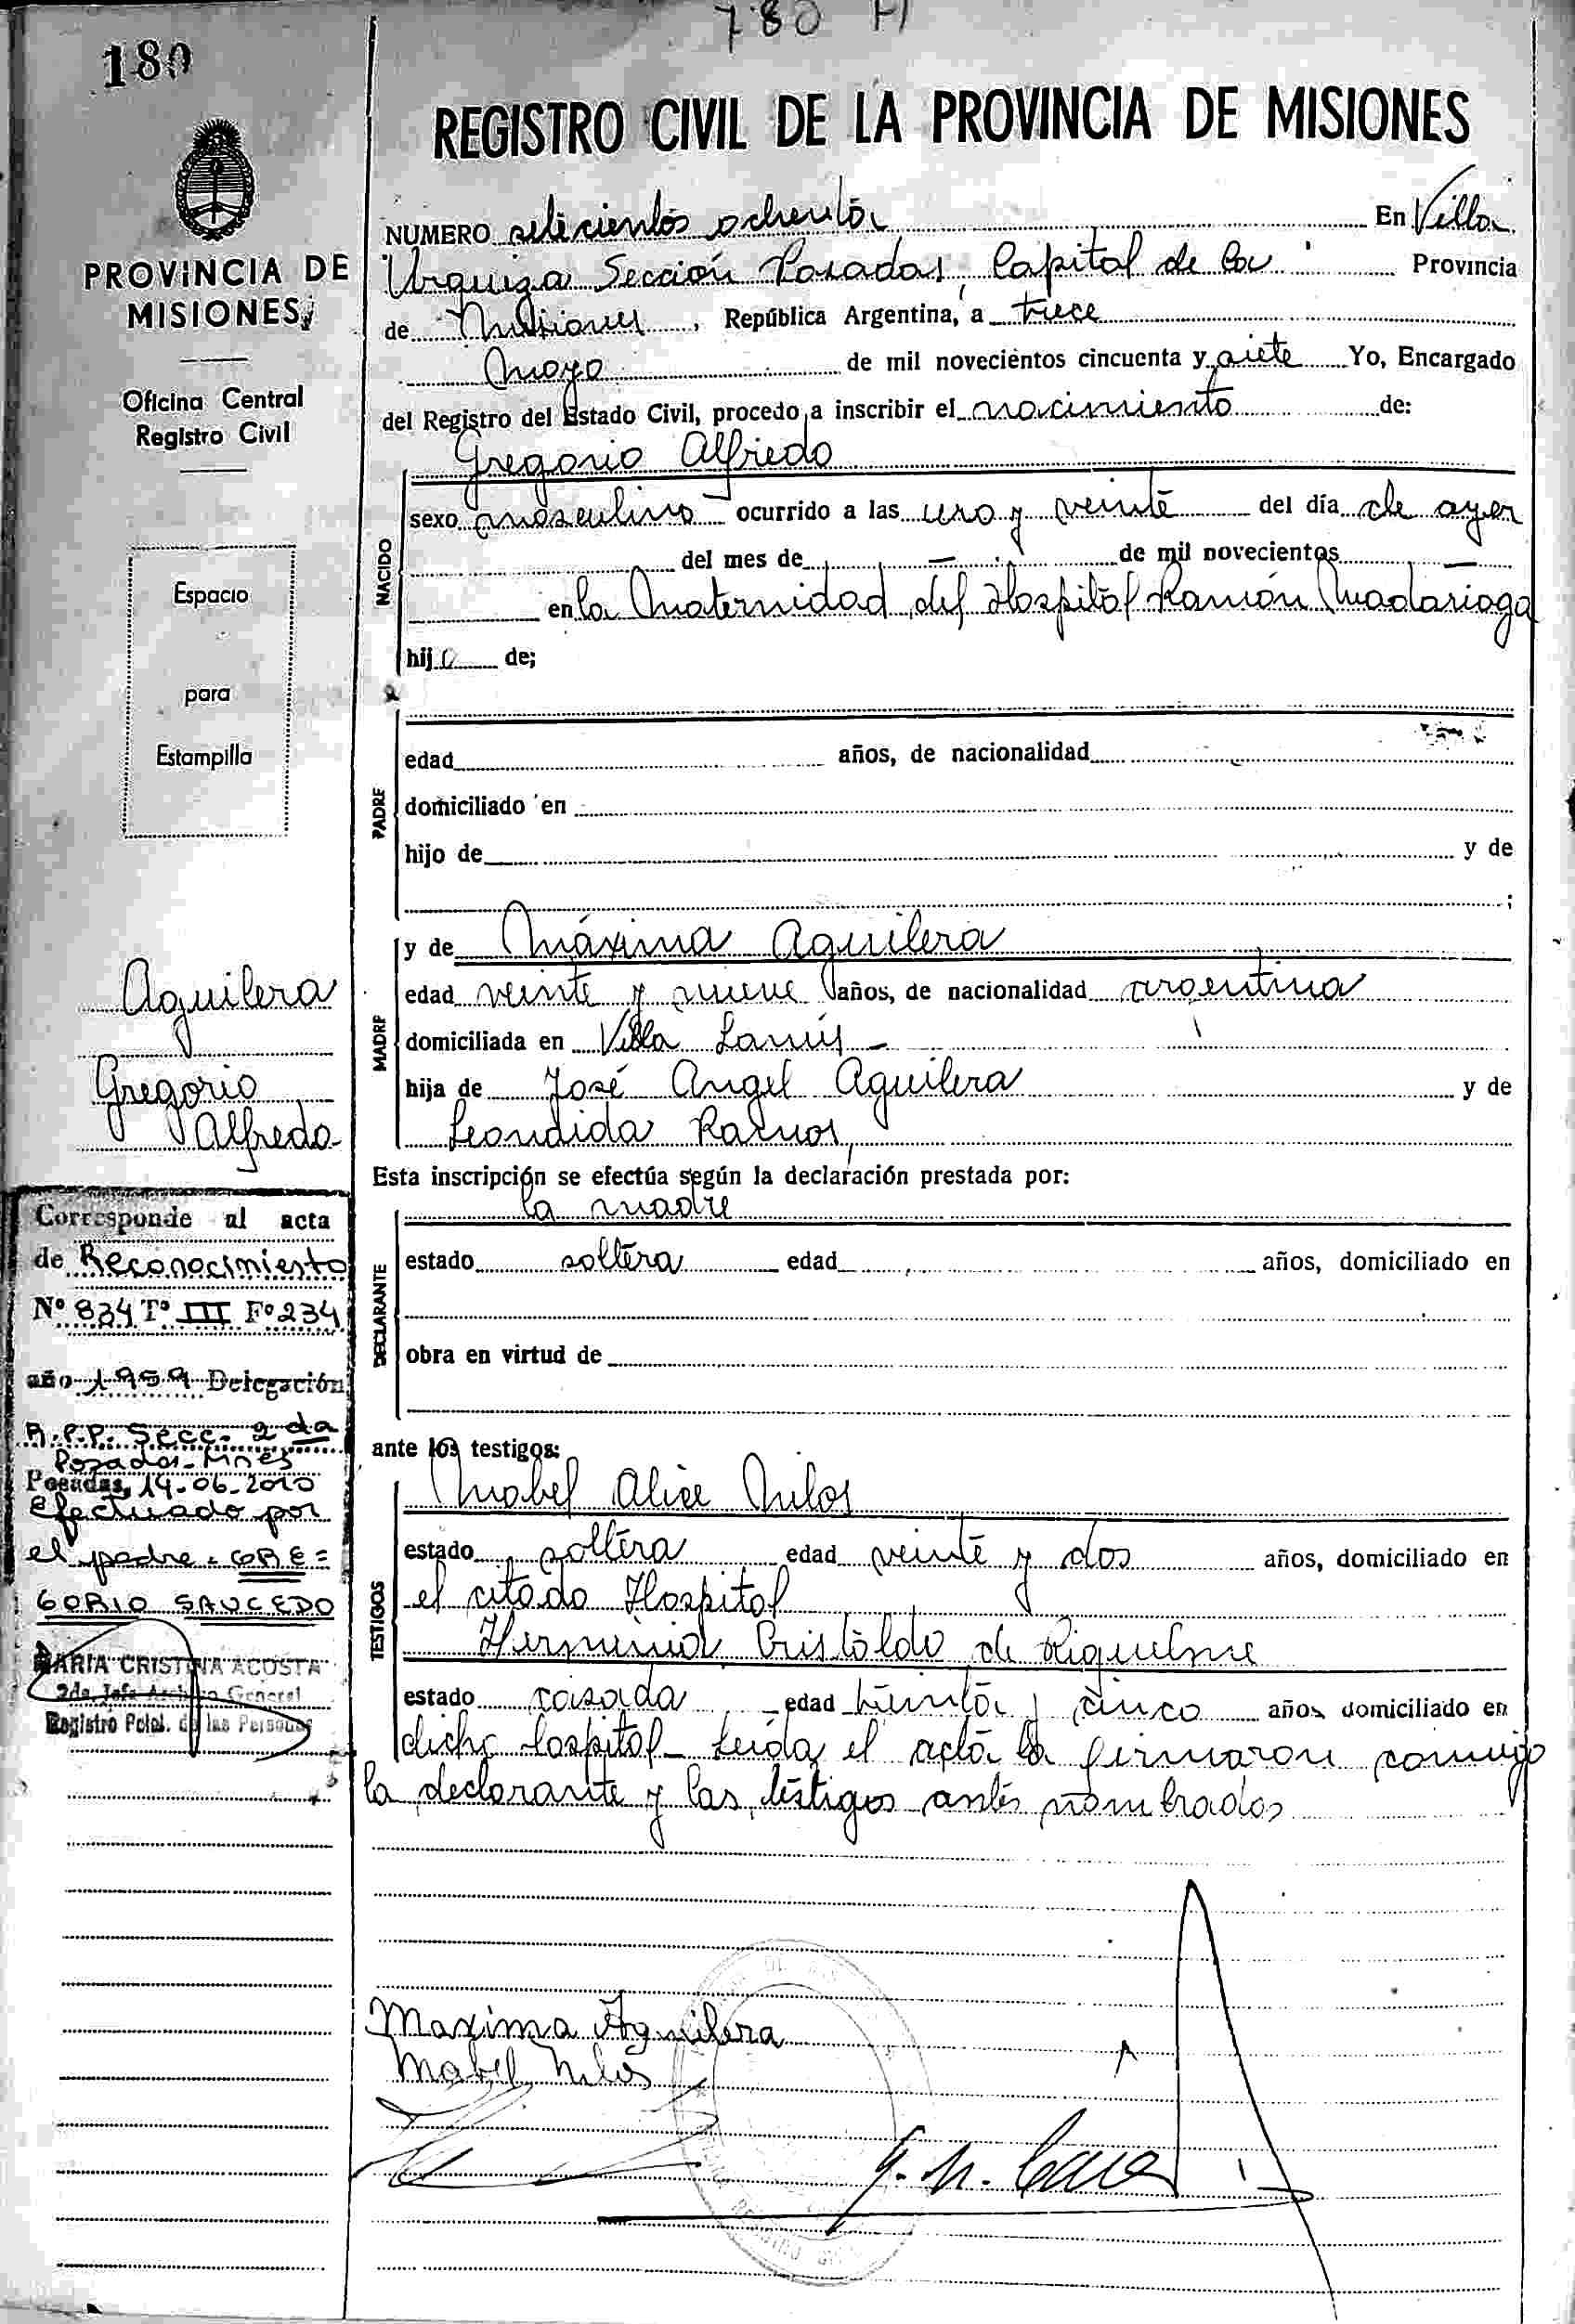 780 H
180
REGISTRO CIVIL DE LA PROVINCIA DE MISIONES
PROVINCIA DE
MISIONES
Oficina Central
Registro Civil
Espacio
para
Estampilla
NUMERO setecientos ochenta En Villa
Urquiza Sección Posadas, Capital de la Provincia
de Misiones, República Argentina, a trece
mayo de mil novecientos cincuenta y siete Yo, Encargado
del Registro del Estado Civil, procedo a inscribir el nacimiento de:
Gregorio Alfredo
NACIDO
sexo masculino ocurrido a las una y veinte del día de ayer
del mes de — de mil novecientos —
en la Maternidad del Hospital Ramón Madariaga
hijo de;
PADRE
edad años, de nacionalidad
domiciliado en
hijo de y de
;
MADRE
y de Máxima Aguilera
edad veinte y nueve años, de nacionalidad argentina
domiciliada en Villa Lanús –
hija de José Angel Aguilera y de
Leondida Ramos,
Esta inscripción se efectúa según la declaración prestada por:
DECLARANTE
la madre
estado soltera edad años, domiciliado en
obra en virtud de
ante los testigos:
TESTIGOS
Mabel Alice Nilos
estado soltera edad veinte y dos años, domiciliado en
el citado Hospital
Herminia Cristaldo de Riquelme
estado casada edad treinta y cinco años domiciliado en
dicho hospital – Leída el acta la firmaron conmigo
la declarante y las testigos antes nombradas
Maxima Aguilera
Mabel Nilos
Aguilera
Gregorio
Alfredo
Corresponde al acta
de Reconocimiento
Nº 834 Tº III Fº 234
año 1959 Delegación
R.P.P. Secc. 2da
Posadas-Mnes
Posadas, 14-06-2010
Efectuado por
el padre. GRE=
GORIO SAUCEDO
MARIA CRISTINA ACOSTA
2da. Jefe Archivo General
Registro Pcial. de las Personas